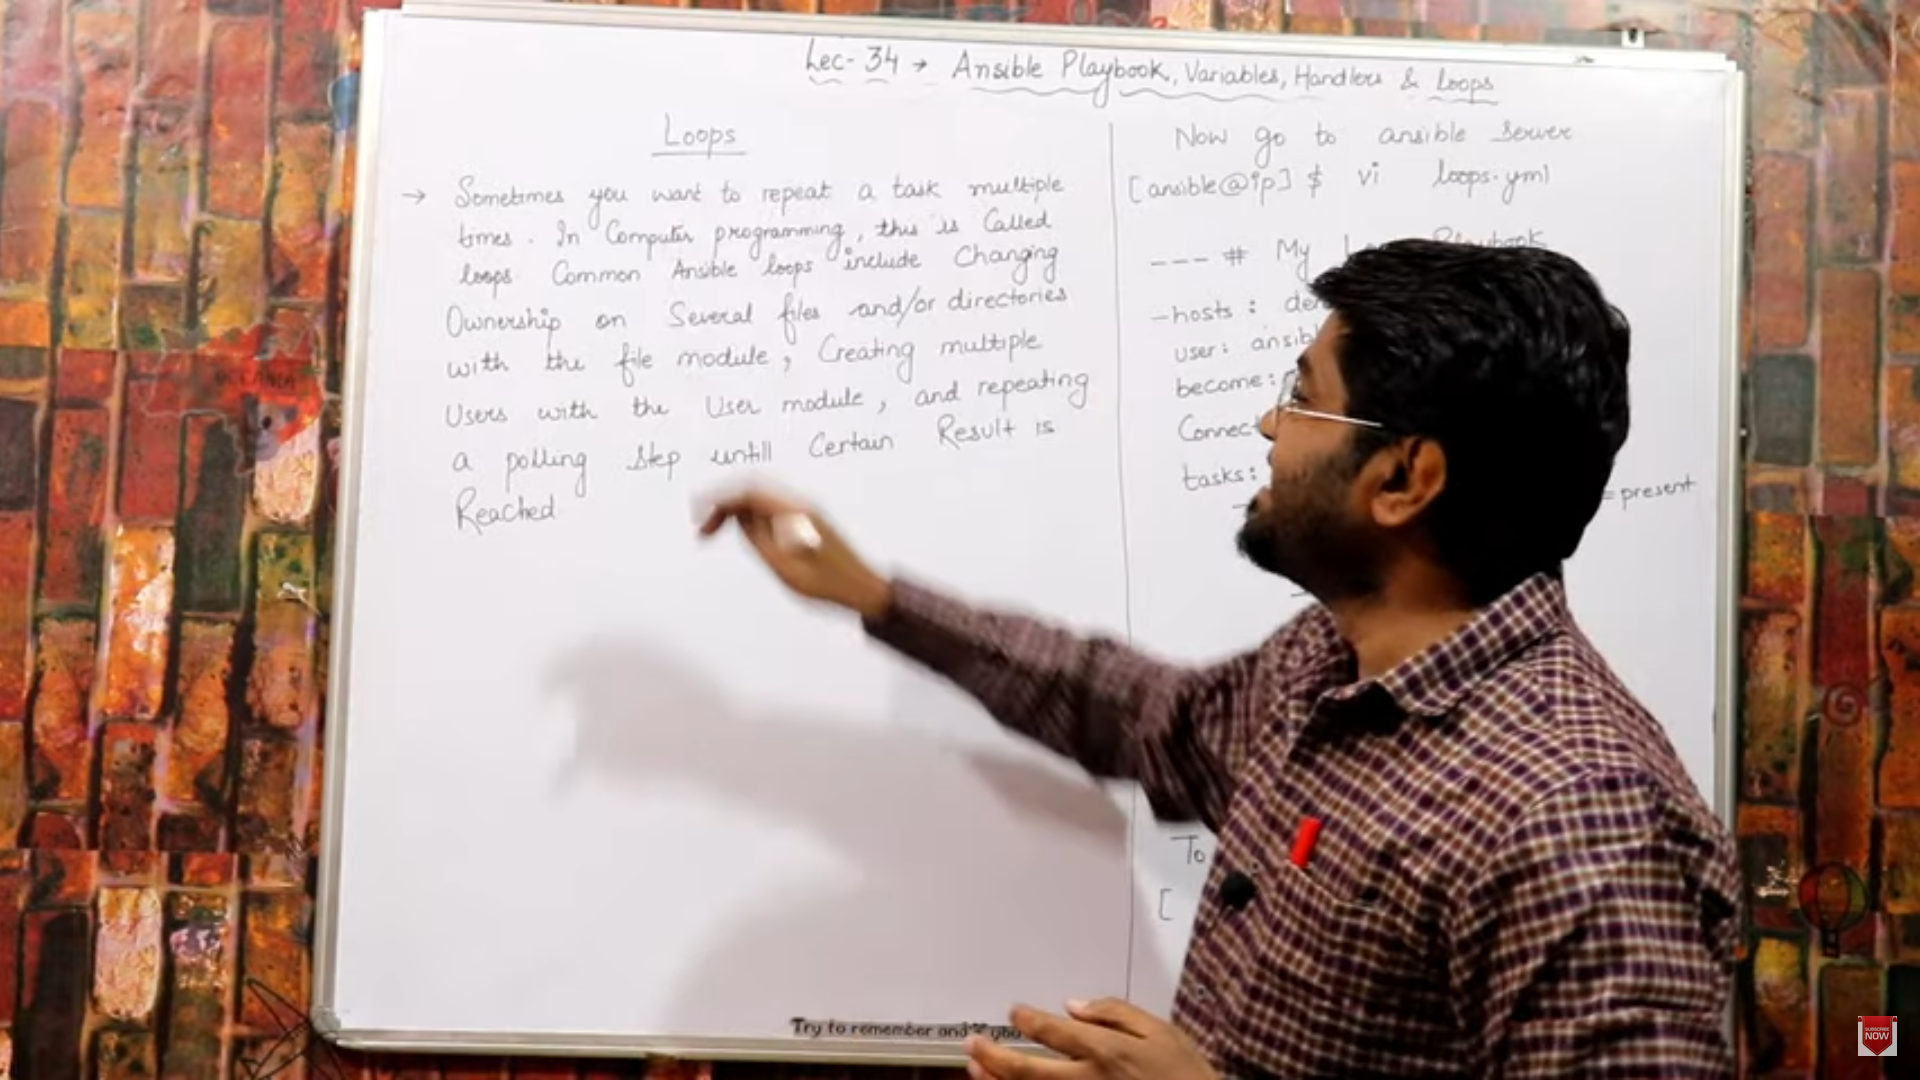 Lec-34 → Ansible Playbook, Variables, Handlers & Loops
Loops
→ Sometimes you want to repeat a task multiple
times. In Computer programming, this is Called
loops Common Ansible loops include Changing
Ownership on Several files and/or directories
with the file module, Creating multiple
Users with the User module, and repeating
a polling Step untill Certain Result is
Reached
Now go to ansible Server
[ansible@ip] $ vi loops.yml
--- # My Playbook
- hosts:
user:
become:
tasks:
= present
To
[
Try to remember and
SUBSCRIBE
NOW